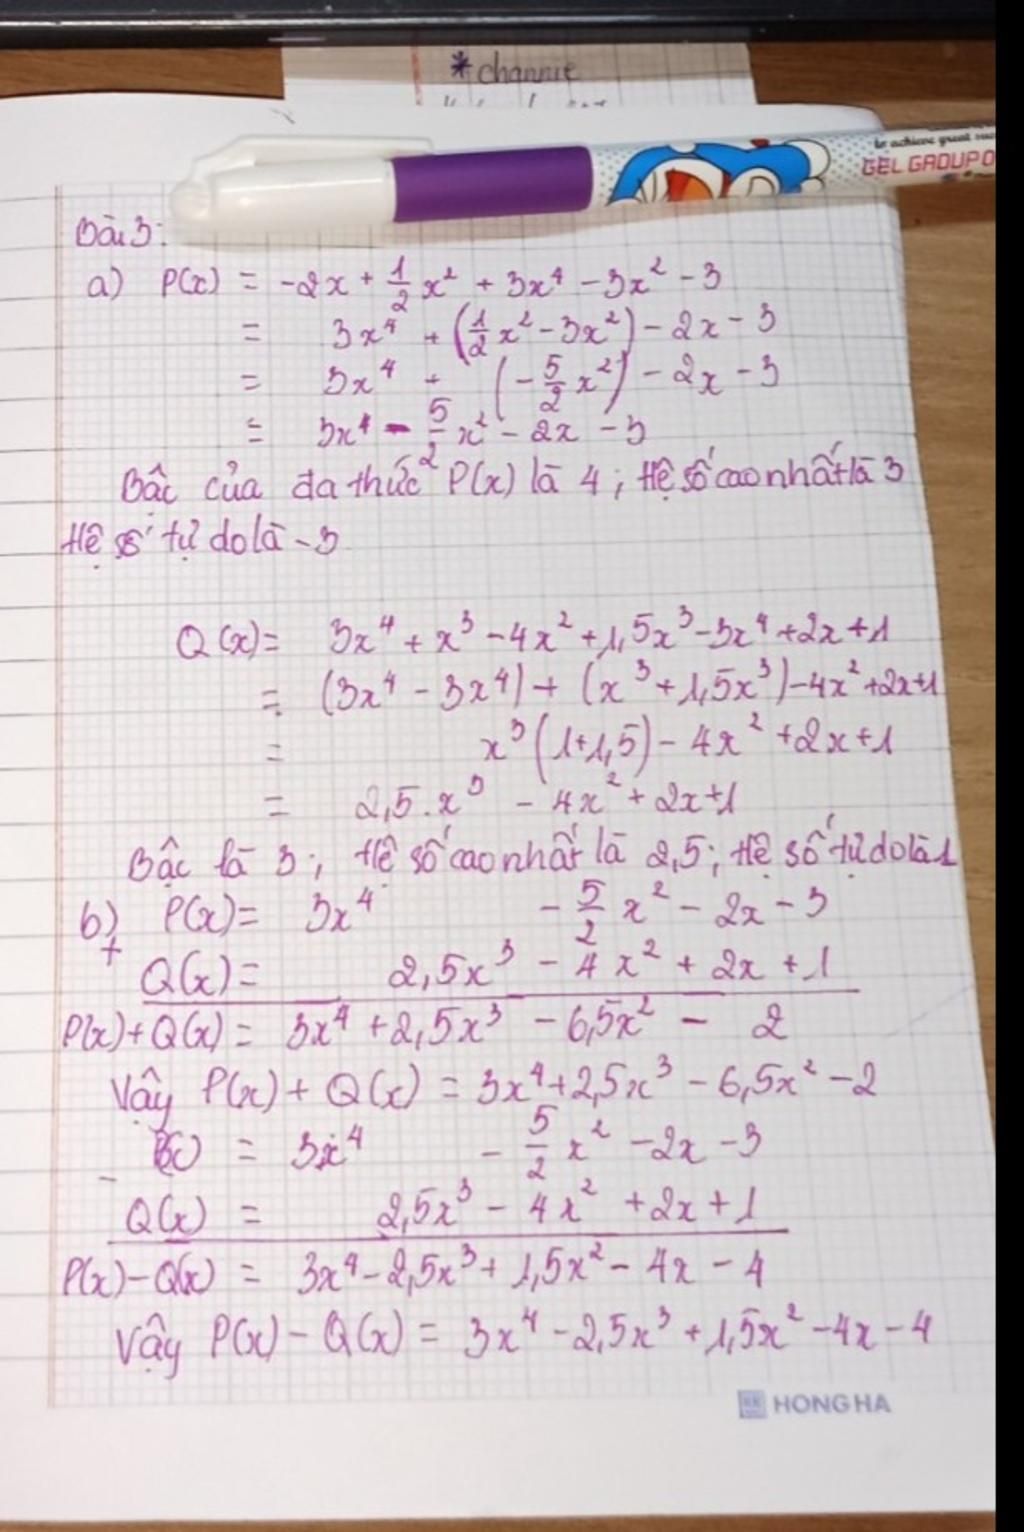 * channie
to achieve great
GEL GADUPO
Bài 3:
a) P(x) = -2x + 1/2 x² + 3x⁴ - 3x² - 3
= 3x⁴ + (1/2 x² - 3x²) - 2x - 3
= 3x⁴ + (-5/2 x²) - 2x - 3
= 3x⁴ - 5/2 x² - 2x - 3
Bậc của đa thức P(x) là 4 ; Hệ số cao nhất là 3
Hệ số tự do là -3
Q(x) = 3x⁴ + x³ - 4x² + 1,5x³ - 3x⁴ + 2x + 1
= (3x⁴ - 3x⁴) + (x³ + 1,5x³) - 4x² + 2x + 1
= x³ (1+1,5) - 4x² + 2x + 1
= 2,5.x³ - 4x² + 2x + 1
Bậc là 3 ; Hệ số cao nhất là 2,5 ; Hệ số tự do là 1
b) P(x) = 3x⁴ - 5/2 x² - 2x - 3
+
Q(x) = 2,5x³ - 4x² + 2x + 1
P(x) + Q(x) = 3x⁴ + 2,5x³ - 6,5x² - 2
Vậy P(x) + Q(x) = 3x⁴ + 2,5x³ - 6,5x² - 2
= 3x⁴ - 5/2 x² - 2x - 3
-
Q(x) = 2,5x³ - 4x² + 2x + 1
P(x) - Q(x) = 3x⁴ - 2,5x³ + 1,5x² - 4x - 4
Vậy P(x) - Q(x) = 3x⁴ - 2,5x³ + 1,5x² - 4x - 4
HONG HA